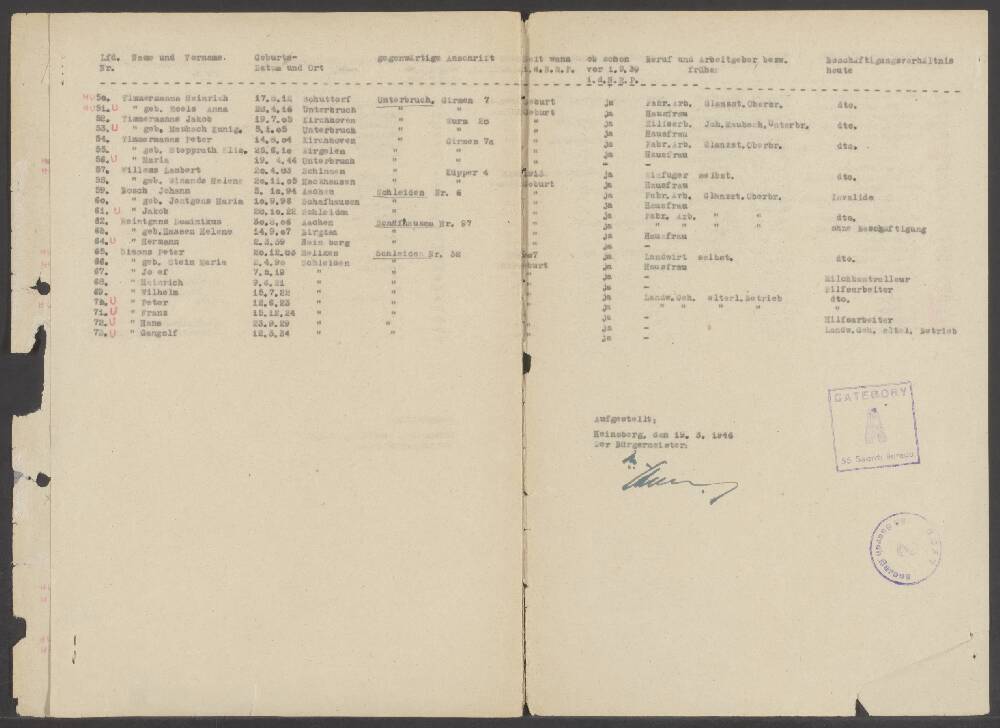 Lfd. Name und Vorname. Geburts- gegenwärtige Anschrift seit wann ob schon Beruf und Arbeitgeber bezw. Beschäftigungsverhältnis
Nr. Datum und Ort i.d.N.R.P. vor 1.9.39 früher heute
i.d.N.R.P.
50. Timmermanns Heinrich 17.6.12 Schuttorf Unterbruch, Girmen 7 Geburt ja Fabr.Arb. Glanzst.Oberbr. dto.
51. U " geb. Anna 23.4.16 Unterbruch " " Geburt ja Hausfrau
52. Timmermanns Jakob 19.7.05 Kirchhoven " Wurm 20 " ja Hilfserb. Joh.Maubach,Unterbr. dto.
53. U " geb. Maubach Kunig. 5.1.05 Unterbruch " " " ja Hausfrau
54. Timmermanns Peter 14.8.04 Kirchhoven " Girmen 7a " ja Fabr.Arb. Glanzst.Oberbr. dto.
55. " geb. Stoppruth Elis. 25.6.10 Birgelen " " ja Hausfrau
56. U " Maria 19. 4.44 Unterbruch " " - -
57. Willems Lambert 20.4.03 Schinnen " Küpper 4 ja selbst. dto.
58. " geb. Winands Helene 20.11.05 Mackhausen " " Geburt ja Hausfrau
59. Bosch Johann 3. 10.94 Aachen Schleiden Nr. 6 " ja Fabr.Arb. Glanzst.Oberbr. Invalide
60. " geb. Jontgens Maria 10.9.96 Schafhausen " " ja Hausfrau
61. U " Jakob 20.10.22 Schleiden " " ja Fabr. Arb " " dto.
62. Reintgens Dominikus 30.8.06 Aachen Schafhausen Nr. 97 " ja " " " " ohne Beschäftigung
63. " geb.Hassen Helene 14.9.07 Birgden " " ja Hausfrau
64. U " Hermann 2.3.39 Heinsberg " " ja -
65. Simons Peter 20.12.03 Schleiden Nr. 32 ja Landwirt selbst. dto.
66. " geb. Stein Maria 2.4.90 Schleiden " Geburt ja Hausfrau
67. " Josef 7.2.19 " " " ja - Milchkontrolleur
68. " Heinrich 9.4.21 " " " ja - Hilfsarbeiter
69. " Wilhelm 15.7.22 " " " ja Landw.Geh. elterl.Betrieb dto.
70. U " Peter 12.6.23 " " " ja " " " " "
71. U " Franz 15.12.24 " " " ja - Hilfsarbeiter
72. U " Hans 23.9.29 " " " ja - Landw.Geh. eltel. Betrieb
73. U " Gangolf 12.3.34 " " " ja -
Aufgestellt:
Heinsberg, den 19. 3. 1946
Der Bürgermeister:
CATEGORY
A
SS Search Bureau